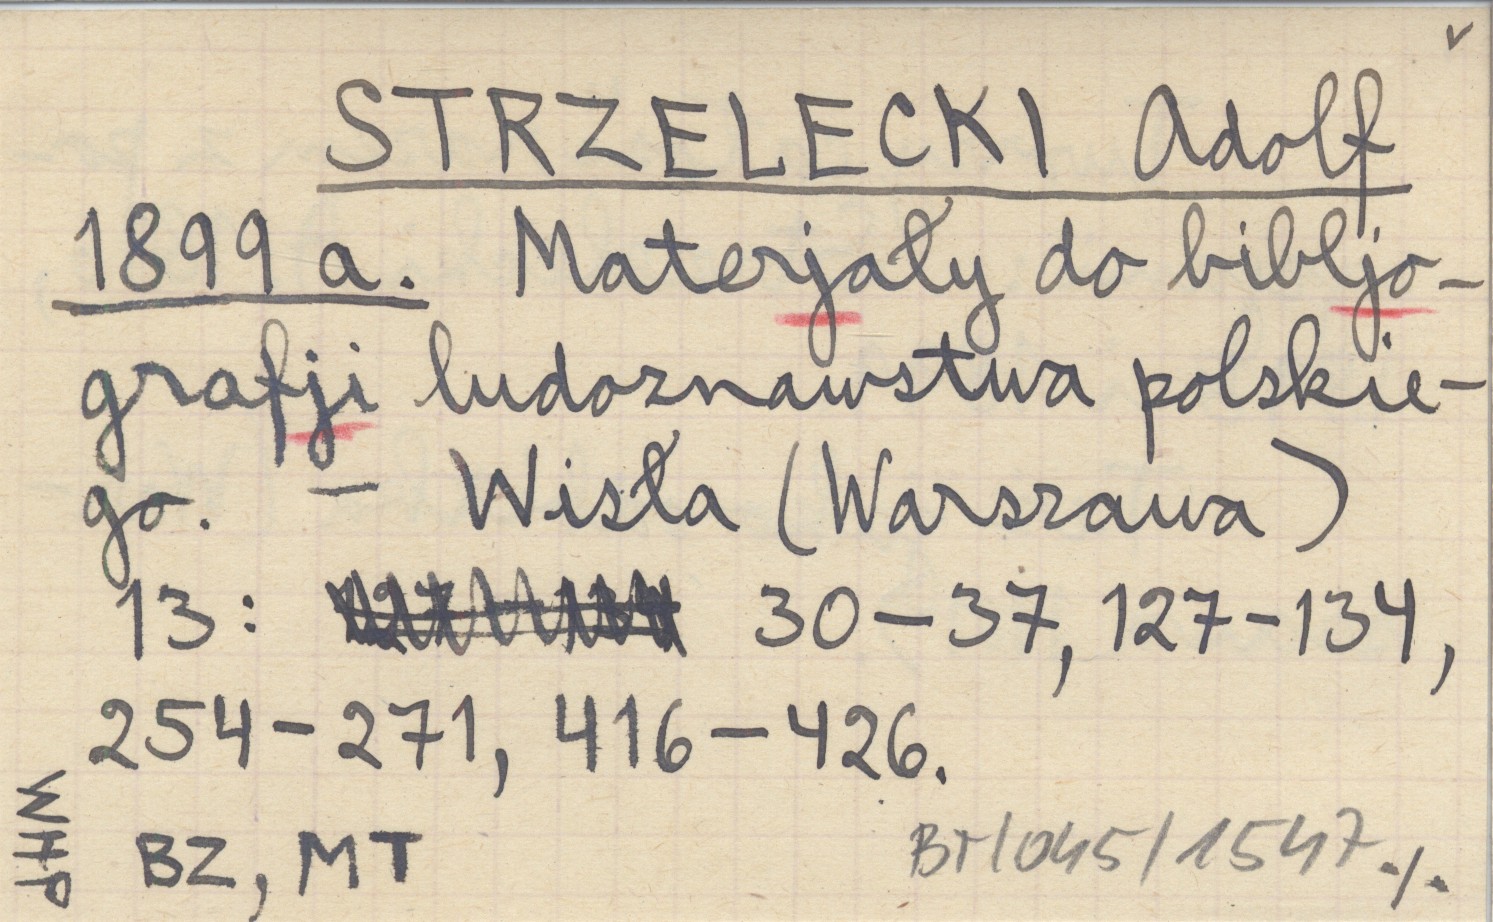 v
STRZELECKI Adolf
1899 a. Materjały do bibljo-
grafji ludoznawstwa polskie-
go. — Wisła (Warszawa)
13: 30-37, 127-134,
254-271, 416-426.
WHP
BZ, MT
BT/045/1547 ./.